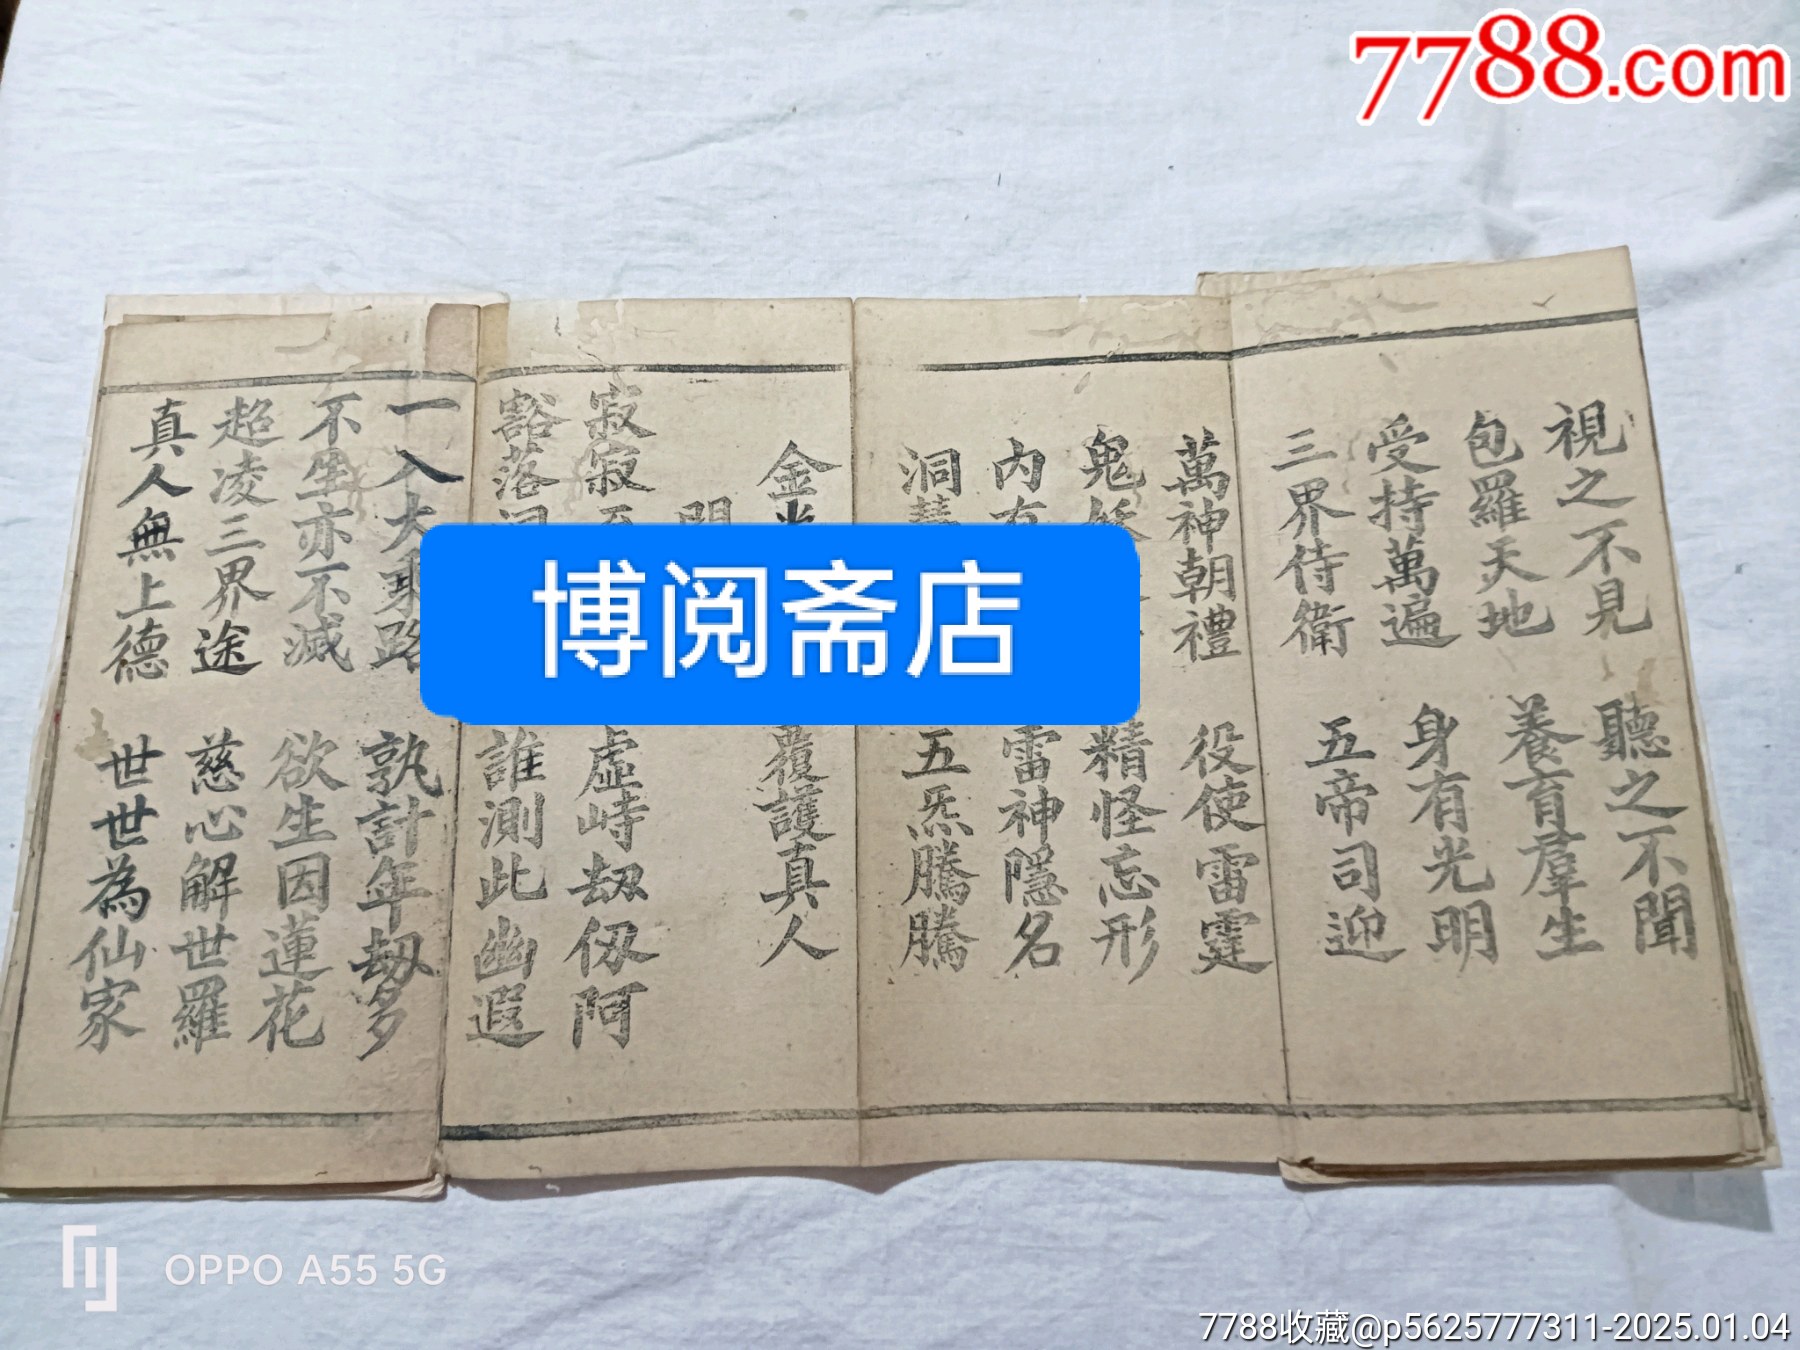 7788.com
視之不見 聽之不聞
包羅天地 養育羣生
受持萬遍 身有光明
三界侍衛 五帝司迎
萬神朝禮 役使雷霆
鬼妖 精怪忘形
內有 雷神隱名
洞慧 五炁騰騰
金光 覆護真人
開
寂寂至 虛峙劫仭阿
豁落洞 誰測此幽遐
一入大乘路 孰計年劫多
不生亦不滅 欲生因蓮花
超凌三界途 慈心解世羅
真人無上德 世世為仙家
博阅斋店
OPPO A55 5G
7788收藏@p5625777311-2025.01.04